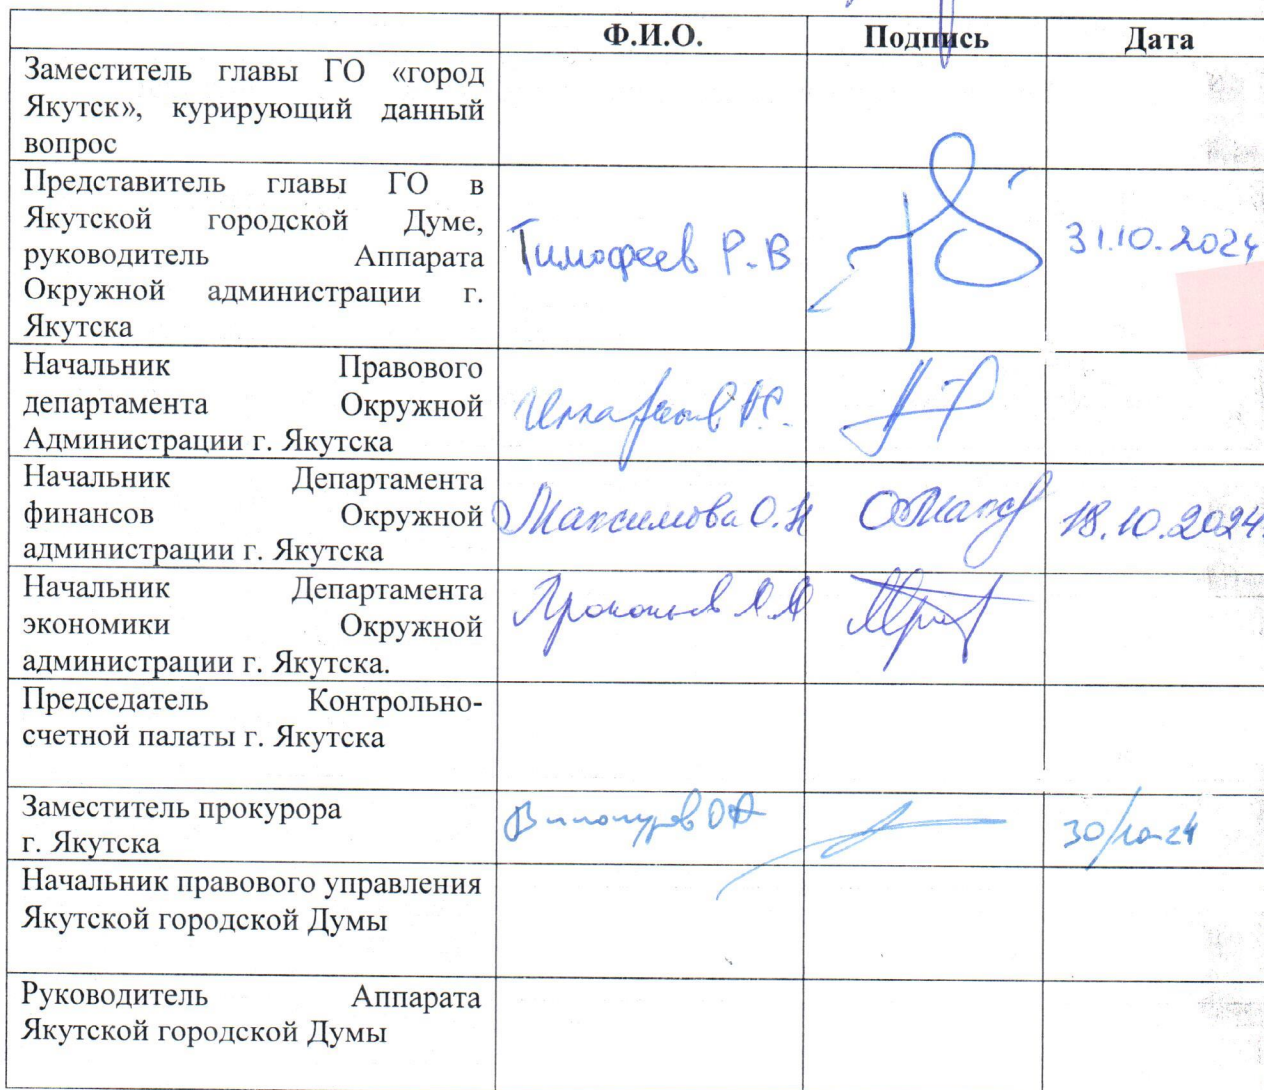 Ф.И.О. Подпись Дата
Заместитель главы ГО «город
Якутск», курирующий данный
вопрос
Представитель главы ГО в
Якутской городской Думе,
руководитель Аппарата
Окружной администрации г.
Якутска
Тимофеев Р.В 31.10.2024
Начальник Правового
департамента Окружной
Администрации г. Якутска
Начальник Департамента
финансов Окружной
администрации г. Якутска
Максимова О.Н 18.10.2024.
Начальник Департамента
экономики Окружной
администрации г. Якутска.
Прокопьев А.А
Председатель Контрольно-
счетной палаты г. Якутска
Заместитель прокурора
г. Якутска
Винокуров 30/10-24
Начальник правового управления
Якутской городской Думы
Руководитель Аппарата
Якутской городской Думы